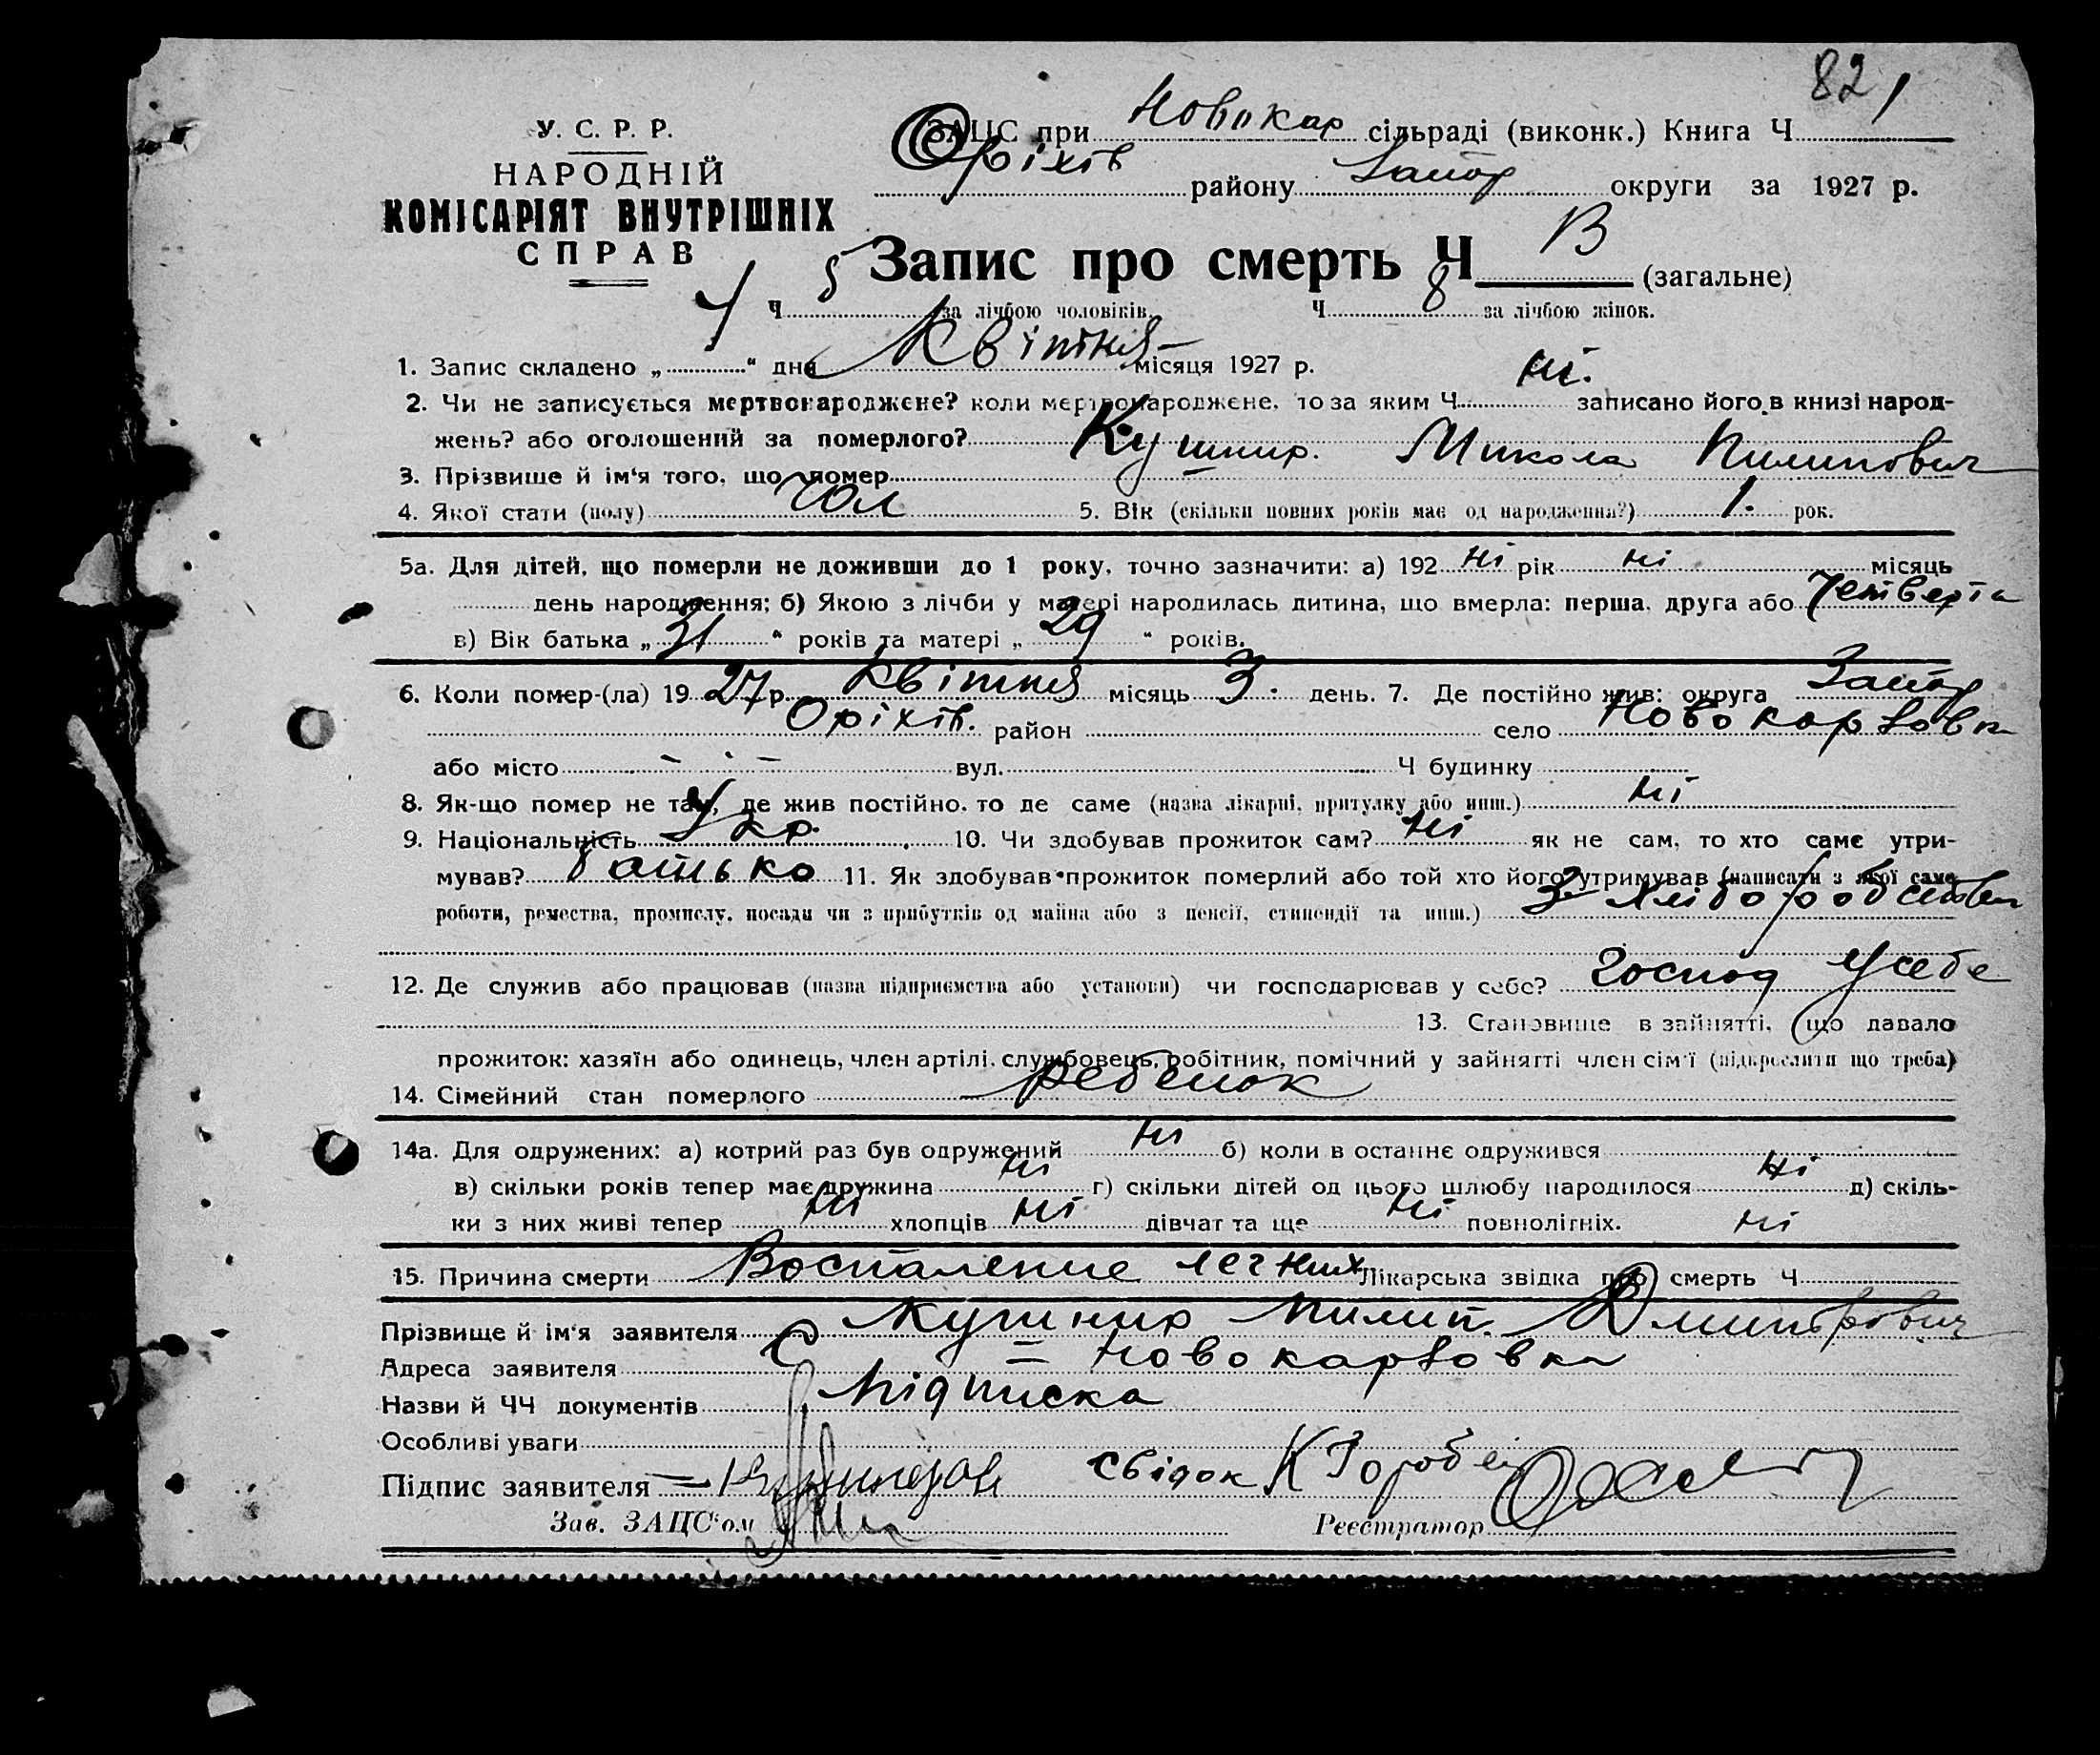 82
У. С. Р. Р.
НАРОДНІЙ
КОМІСАРІЯТ ВНУТРІШНІХ
СПРАВ
ЗАЦС при Новокар сільраді (виконк.) Книга Ч
Оріхів району Запор округи за 1927 р.
Запис про смерть Ч 13 (загальне)
Ч 5 за лічбою чоловіків. Ч 8 за лічбою жінок.
1. Запис складено „ 4 “ дня Квітня місяця 1927 р.
2. Чи не записується мертвонароджене? коли мертвонароджене, то за яким Ч ні. записано його в книзі народ-
жень? або оголошений за померлого?
3. Прізвище й ім‘я того, що помер Кушнир. Микола Пилипович
4. Якої стати (полу) чол 5. Вік (скільки повних років має од народження?) 1. рок.
5а. Для дітей, що померли не доживши до 1 року, точно зазначити: а) 192 ні рік ні місяць
день народження; б) Якою з лічби у матері народилась дитина, що вмерла: перша, друга або Четверта
в) Вік батька „ 31 “ років та матері „ 29 “ років.
6. Коли помер-(ла) 19 27 р. Квітня місяць 3. день. 7. Де постійно жив: округа Запор
Оріхів. район село Новокарловка
або місто — · — вул. Ч будинку
8. Як-що помер не там, де жив постійно, то де саме (назва лікарні, притулку або инш.) ні
9. Національність Укр. 10. Чи здобував прожиток сам? ні як не сам, то хто саме утри-
мував? батько 11. Як здобував прожиток померлий або той хто його утримував (написати з якої саме
роботи, ремества, промислу, посади чи з прибутків од майна або з пенсії, стипендії та инш.) З хліборобства
12. Де служив або працював (назва підприємства або установи) чи господарював у себе? господ у себе
13. Становище в зайнятті, що давало
прожиток: хазяїн або одинець, член артілі, службовець, робітник, помічний у зайнятті член сім‘ї (підкреслити що треба)
14. Сімейний стан померлого ребенок
14а. Для одружених: а) котрий раз був одружений ні б) коли в останнє одружився
в) скільки років тепер має дружина ні г) скільки дітей од цього шлюбу народилося ні д) скіль-
ки з них живі тепер ні хлопців ні дівчат та ще ні повнолітніх. ні
15. Причина смерти Воспаление легких Лікарська звідка про смерть Ч
Прізвище й ім‘я заявителя Кушнир Пилип. Дмитрович
Адреса заявителя С = Новокарловка
Назви й ЧЧ документів Підписка
Особливі уваги
Підпис заявителя свідок К Горобец
Зав. ЗАЦС‘ом Реєстратор